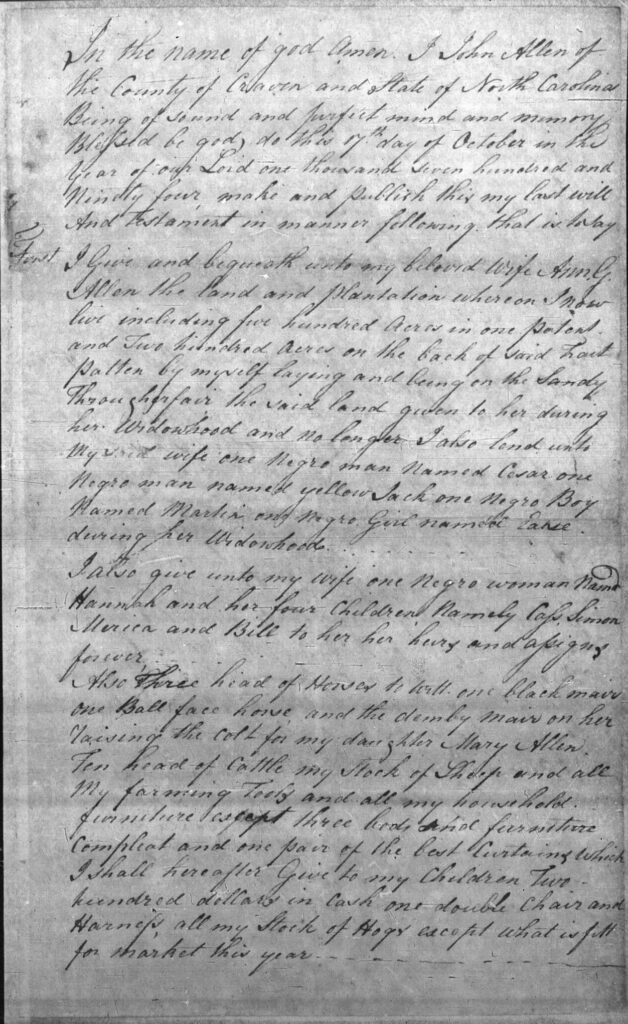 In the name of god Amen. I John Allen of
the County of Craven and State of North Carolina
Being of sound and purfect mind and memory
Blessed be god, do this 17th day of October in the
Year of our Lord one thousand seven hundred and
Ninety four, make and publish this my last will
And Testament in manner following that is to say
First I Give and bequeath unto my beloved Wife Ann G.
Allen the land and plantation whereon I now
live including five hundred Acres in one patent.
and Two hundred Acres on the back of said Tract
patten by myself laying and being on the Sandy
Througherfair the said land given to her during
her Widowhood and no longer I also lend unto
My said wife one Negro man Named Cesar one
Negro man named yellow Jack one Negro Boy
Named Martin one Negro Girl named
during her Widowhood
I also give unto my wife one Negro woman Name
Hannah and her four Children Namely Cass, Simon
Merica and Bill to her her heirs and assigns
forever,
Also Three head of Horses to Witt one black mair
one Ball face horse and the demby mair on her
raising the colt for my daughter Mary Allen.
Ten head of Cattle my Stock of Sheep and all
My farming Tools and all my household
furniture except three beds and furniture
Compleat and one pair of the best Curtains which
I shall hereafter Give to my Children Two
hundred dollars in Cash one double Chair and
Harness, all my Stock of Hogs except what is fitt
for market this year